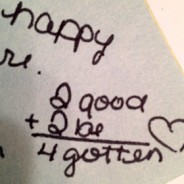 happy
re.
2 good
+ 2 be
4 gotten